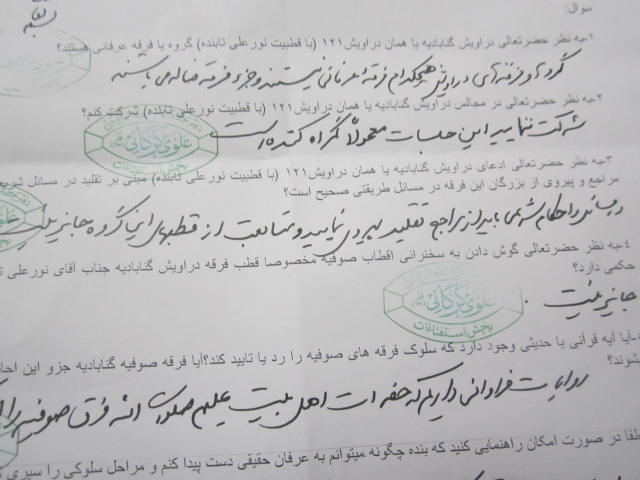 سوال:
۱-به نظر حضرتعالی دراویش گنابادیه یا همان دراویش۱۲۱ (با قطبیت نورعلی تابنده) گروه یا فرقه عرفانی هستند؟
گروه‌ها و فرقه‌های دراویش هیچکدام فرقه عرفانی نیستند و جزء فرقه ضاله می باشند
۲-به نظر حضرتعالی در مجالس دراویش گنابادیه یا همان دراویش۱۲۱ (با قطبیت نورعلی تابنده) شرکت کنم؟
شرکت ننمایید این جلسات معمولاً گمراه کننده است
علوی گرگانی
۳-به نظر حضرتعالی ادعای دراویش گنابادیه یا همان دراویش۱۲۱ (با قطبیت نورعلی تابنده) مبنی بر تقلید در مسائل
مراجع و پیروی از بزرگان این فرقه در مسائل طریقتی صحیح است؟
احکام شرعی باید از مراجع تقلید پیروی نمایید و متابعت از قطبهای این گروه جایز
۴-به نظر حضرتعالی گوش دادن به سخنرانی اقطاب صوفیه مخصوصا قطب فرقه دراویش گنابادیه جناب آقای نورعلی
حکمی دارد؟
جایز نیست
علوی گرگانی
بخش استفتائات
آیا آیه قرآنی یا حدیثی وجود دارد که سلوک فرقه های صوفیه را رد یا تایید کند؟آیا فرقه صوفیه گنابادیه جزو این
روایات فراوانی داریم که حضرات اهل بیت علیهم صلوات الله فرق صوفیه را
در صورت امکان راهنمایی کنید که بنده چگونه میتوانم به عرفان حقیقی دست پیدا کنم و مراحل سلوکی را سپری